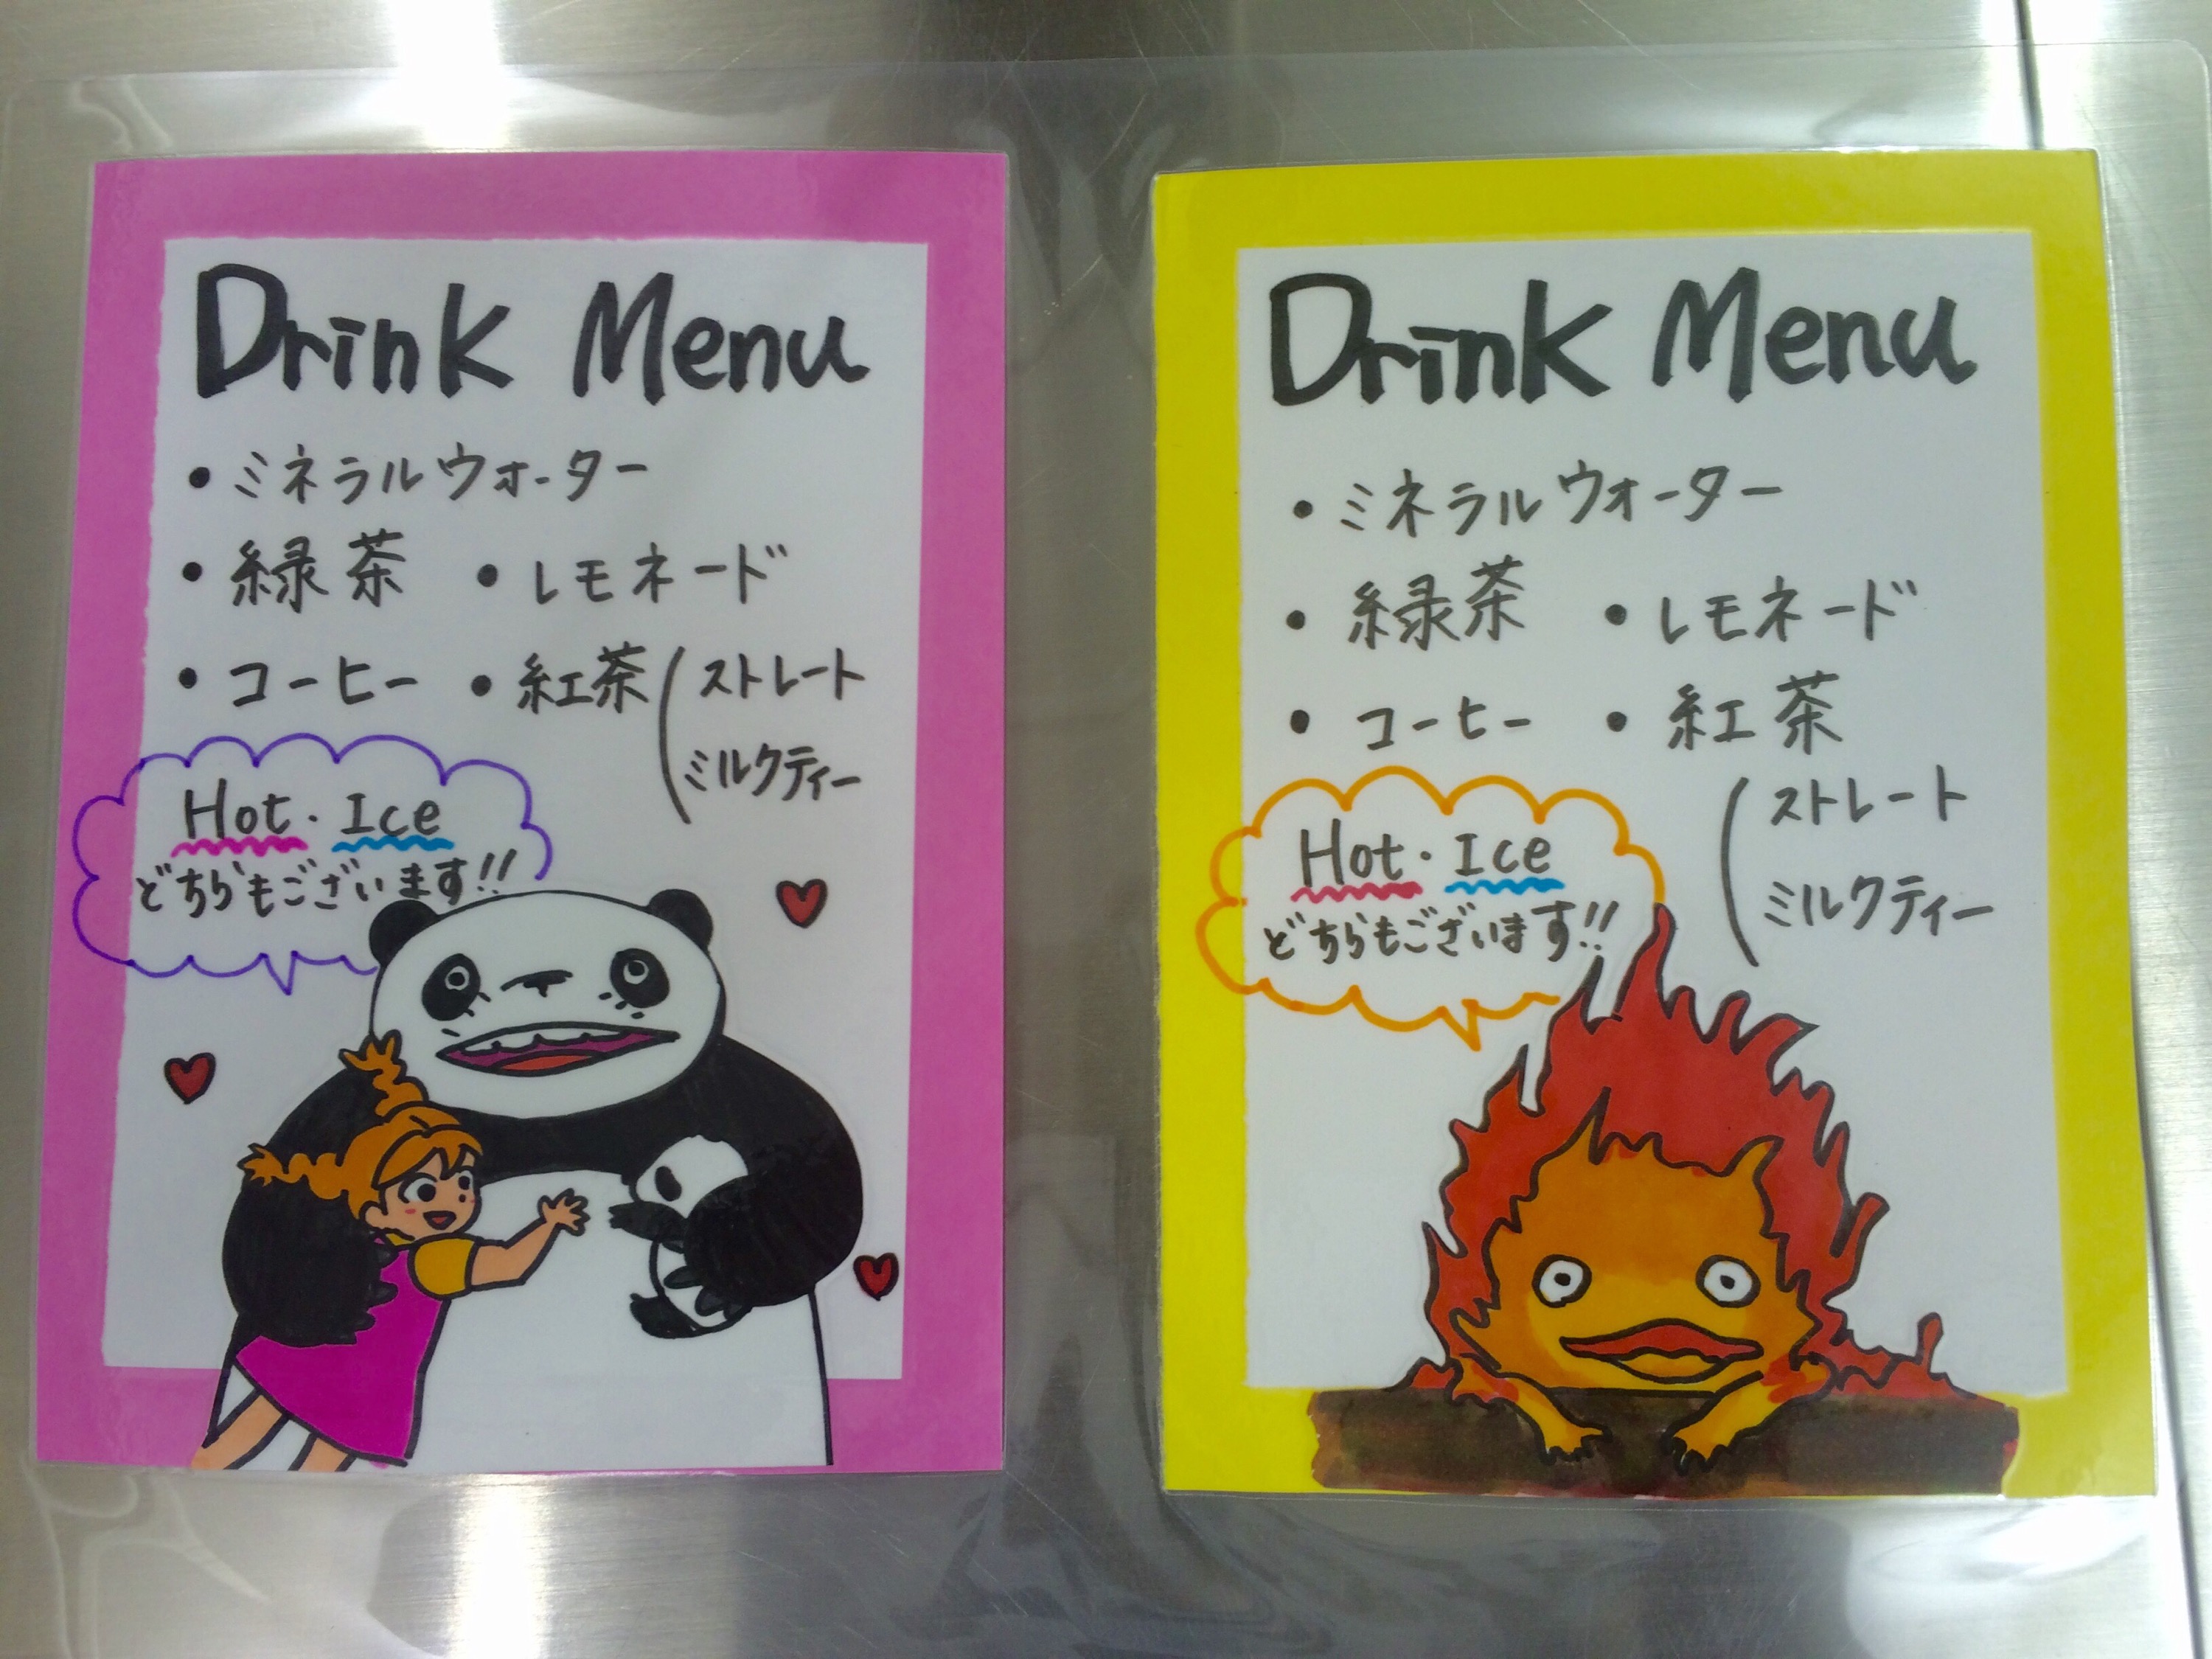 Drink Menu
・ミネラルウォーター
・緑茶 ・レモネード
・コーヒー ・紅茶(ストレート
ミルクティー
Hot・Ice
どちらもございます!!
Drink Menu
・ミネラルウォーター
・緑茶 ・レモネード
・コーヒー ・紅茶
(ストレート
ミルクティー
Hot・Ice
どちらもございます!!